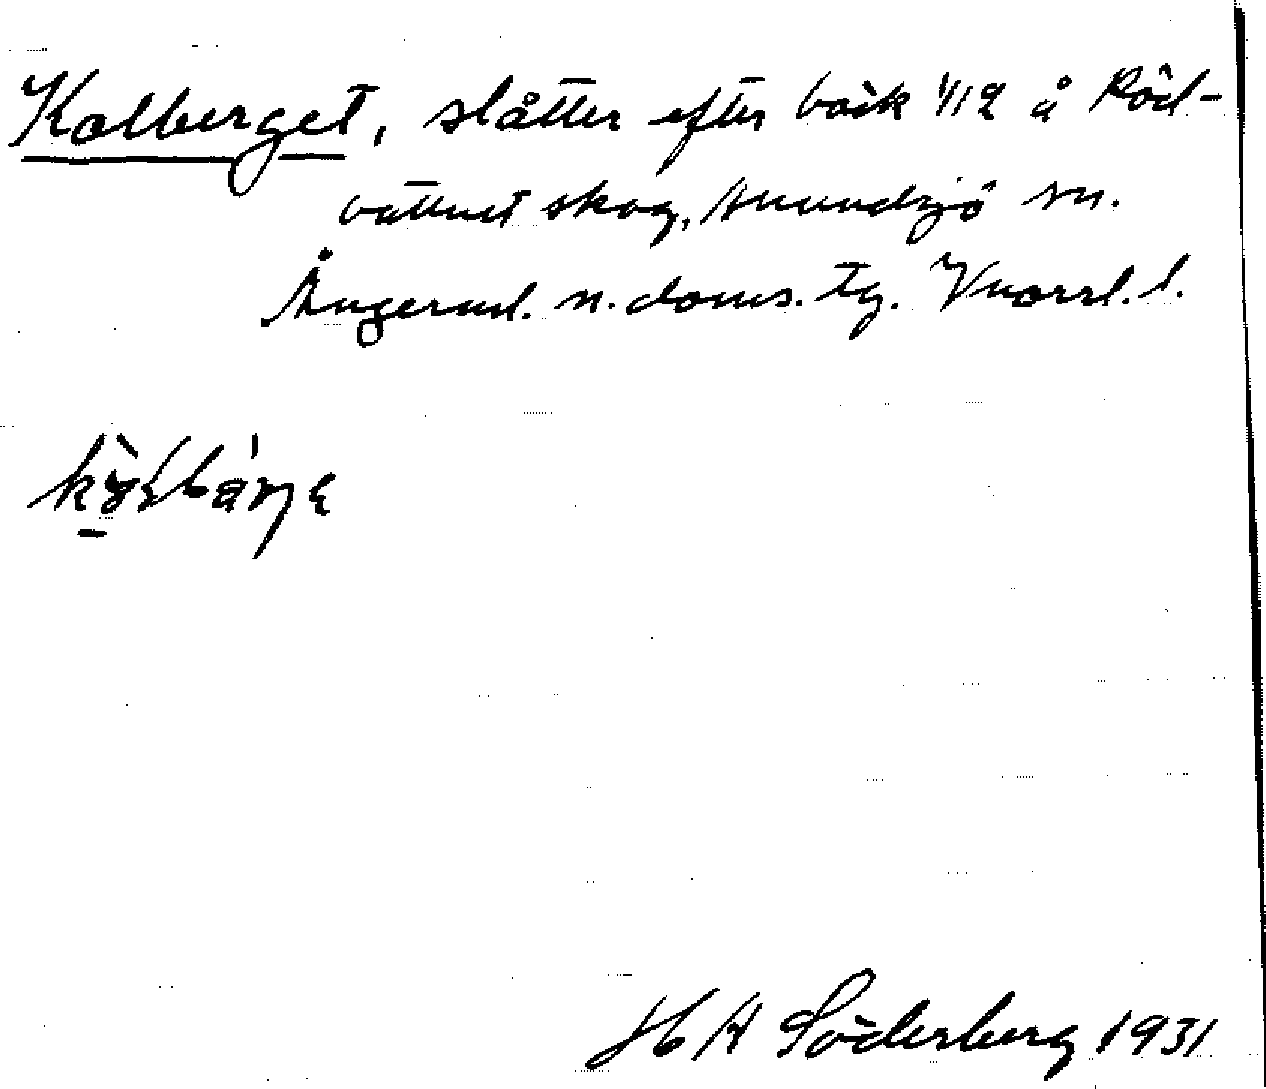 Kolberget, slåtter efter bäck 1/12 å Röd-
vattnet skog, Anundsjö sn.
Ångerml. n. doms. tg. Vnorrl. l.
H A Söderberg 1931